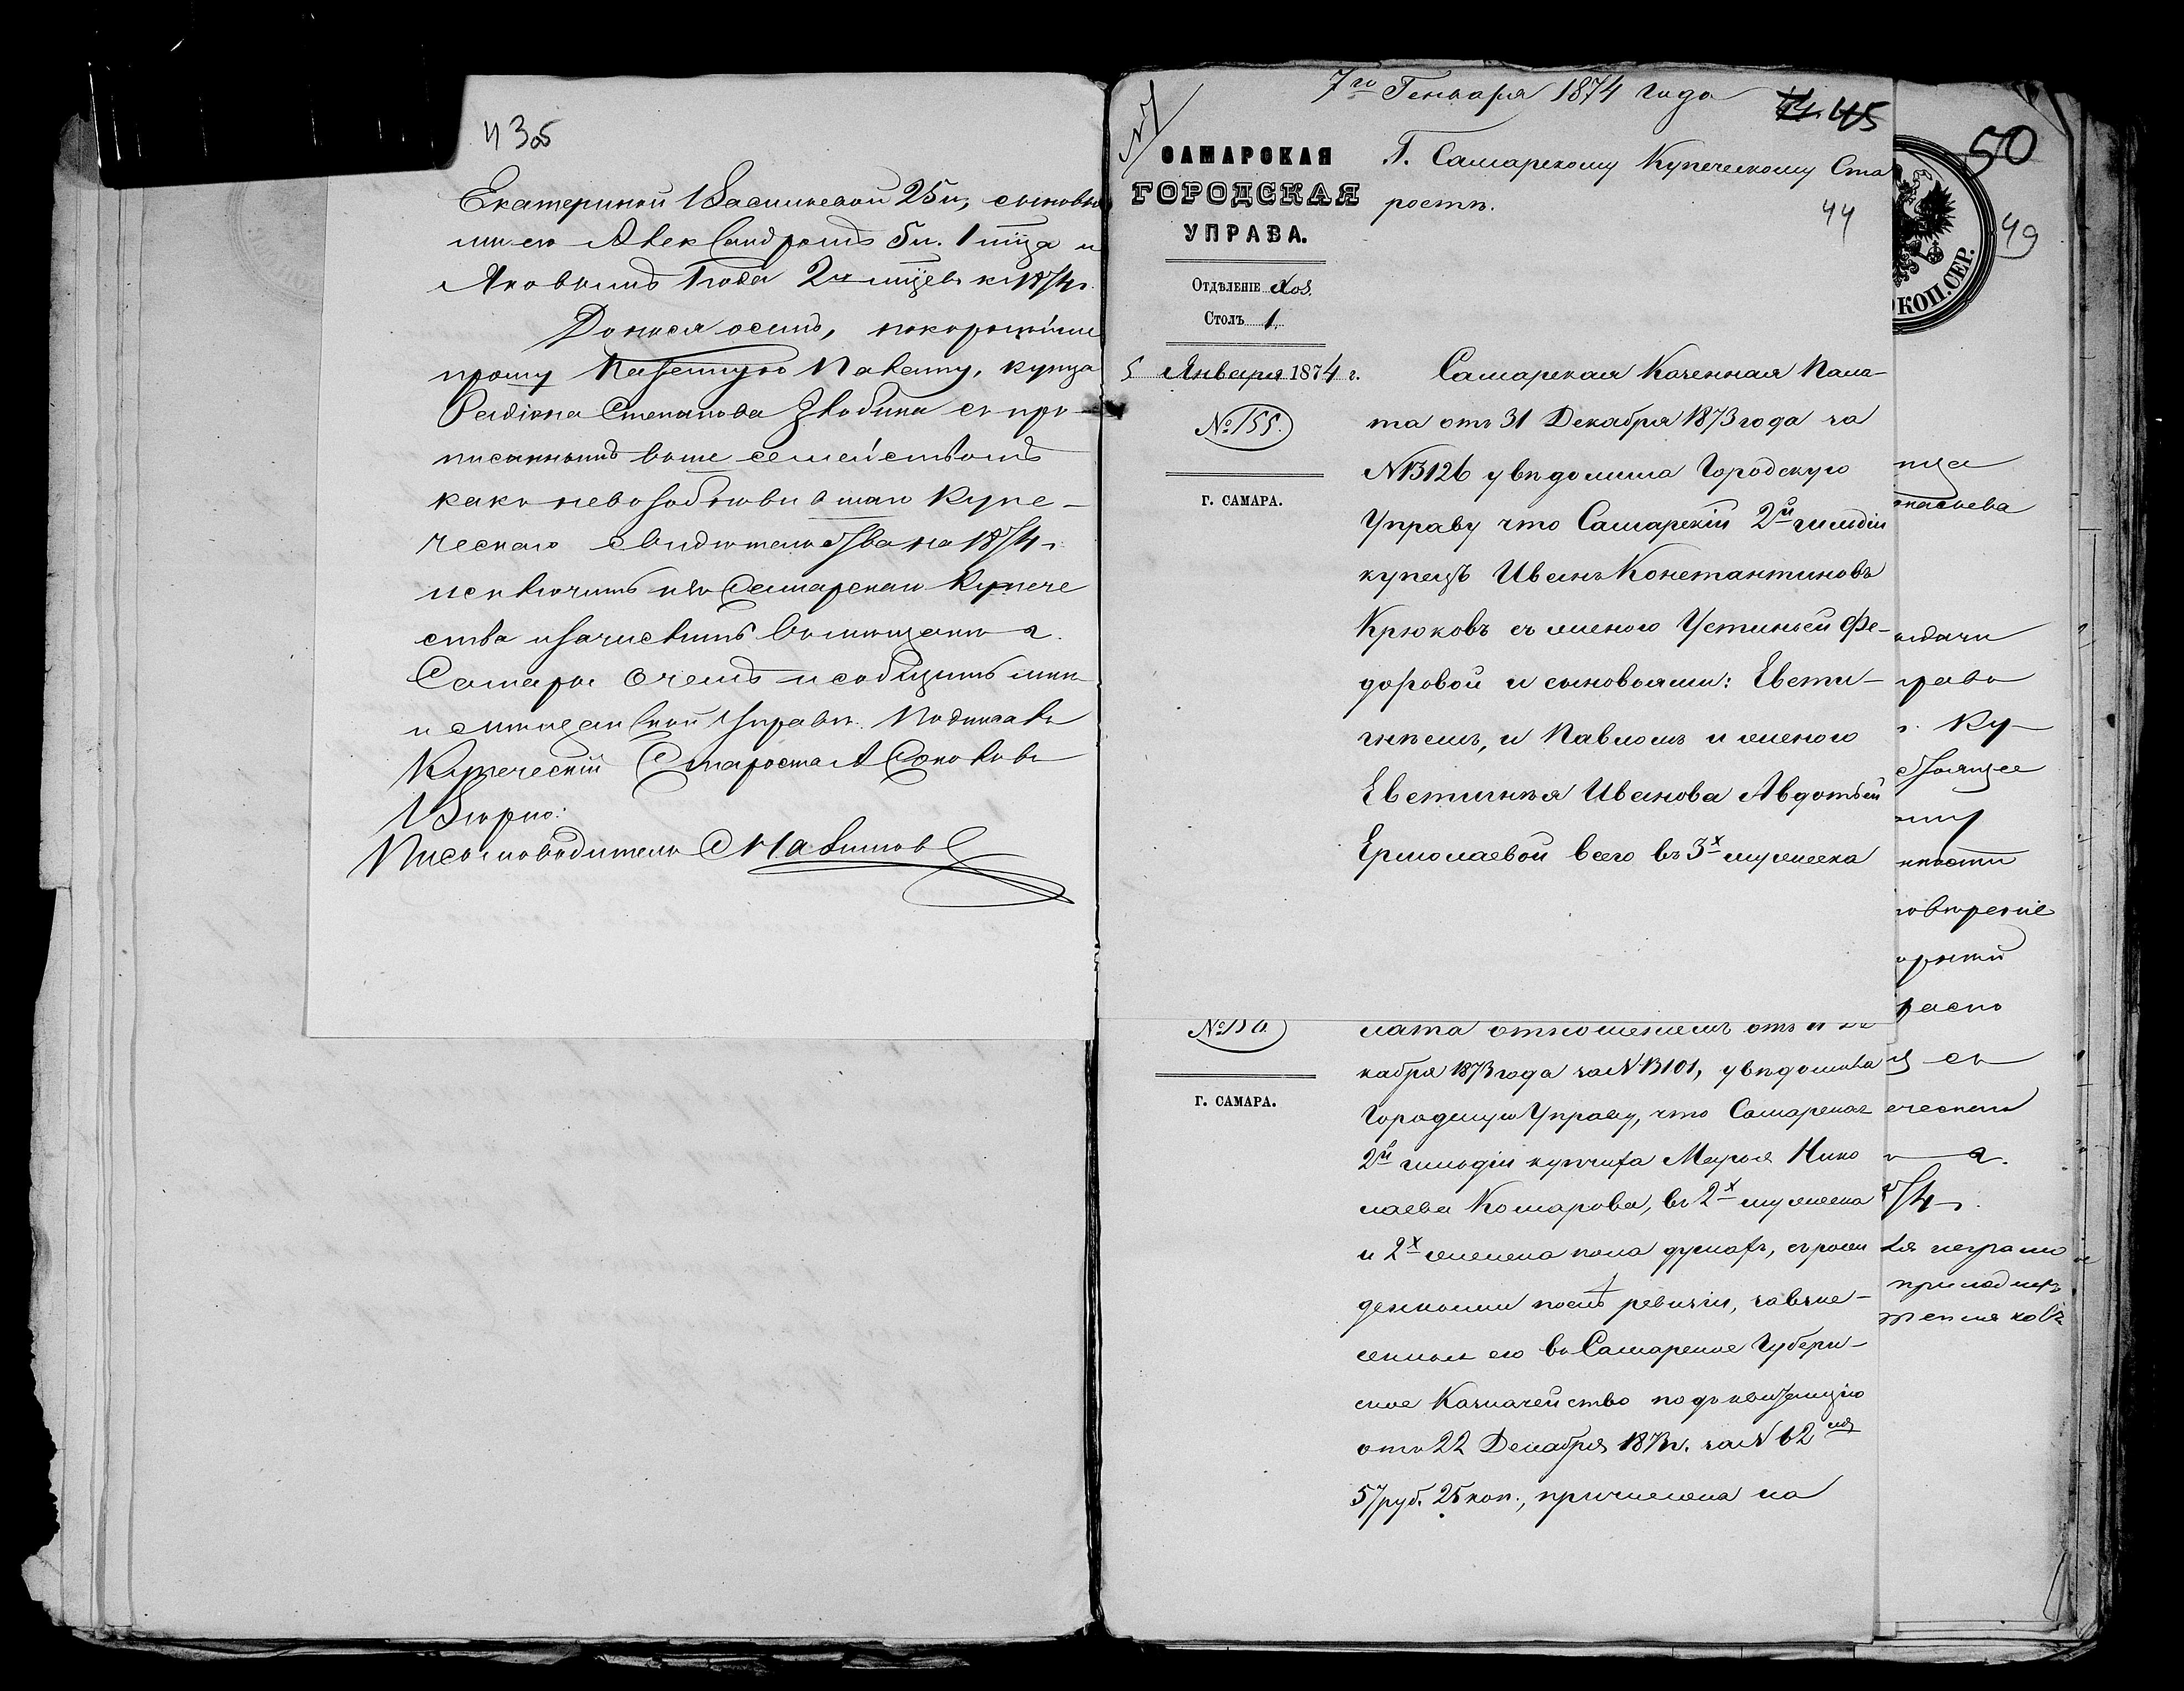 43об
Екатериной Васильевой 25 л, сыновья
ми его Александромъ 5 л. 1 м̃ца и
Яковымъ 1 года 2х м̃цевъ к. 1874 г.
Донося осемъ, покорнѣйше
прошу Казенную Палату, купца
Родіона Степанова Злобина съ про-
писаннымъ выше семействомъ
какъ невозобновившаго Купе-
ческаго свидѣтельства на 1874 г.
исключить изъ Самарскаго Купече
ства и зачислить въ мѣщане г.
Самары о чемъ и сообщить мнѣ
и мѣщанской Управѣ. Подписалъ
Купеческій Староста А Соколовъ
Вѣрно:
Письмоводитель
7го Генваря 1874 года
45
44
САМАРСКАЯ
ГОРОДСКАЯ
УПРАВА.
Отдѣленіе Хоз.
Столъ 1.
5 Января 1874 г.
№ 155.
Г. САМАРА.
Г. Самарскому Купеческому Ста
ростѣ.
Самарская Казенная Пала-
та отъ 31 Декабря 1873 года за
№ 13126 увѣдомила Городскую
Управу что Самарскій 2й гильдіи
купецъ Иванъ Константиновъ
Крюковъ съ женою Устиньей Фе-
доровой и сыновьями: Евсти-
гнѣемъ, и Павломъ и женою
Евстигнѣя Иванова Авдотьей
Ермолаевой всего въ 3х мужеска
№ 156.
Г. САМАРА.
лата отношеніемъ отъ
кабря 1873 года за № 13101, увѣдомила
Городскую Управу, что Самарская
2й гильдіи купчиха Марья Нико
лаева Комарова, въ 2х мужеска
и 2х женска пола душахъ, съ рож
денными послѣ ревизіи, за взне-
сенныя ею въ Самарское Губерн-
ское Казначейство подъ квитанцію
отъ 22 Декабря 1873 г. за № 62мъ
57 руб. 25 коп., причислена на
50
49
КОП. СЕР.
г. Ку-
распо
съ
г.